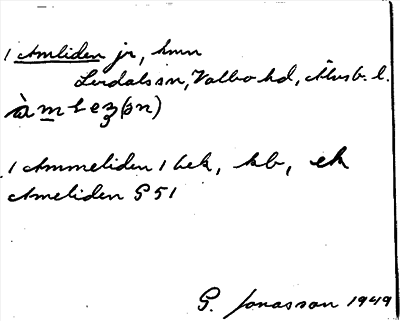 1 Amliden jr, hmn
Lerdals sn, Valbo hd, Älvsb. l.
1 Ammeliden 1 bek, kb, ek
Ameliden G 51
G. Jonasson 1949